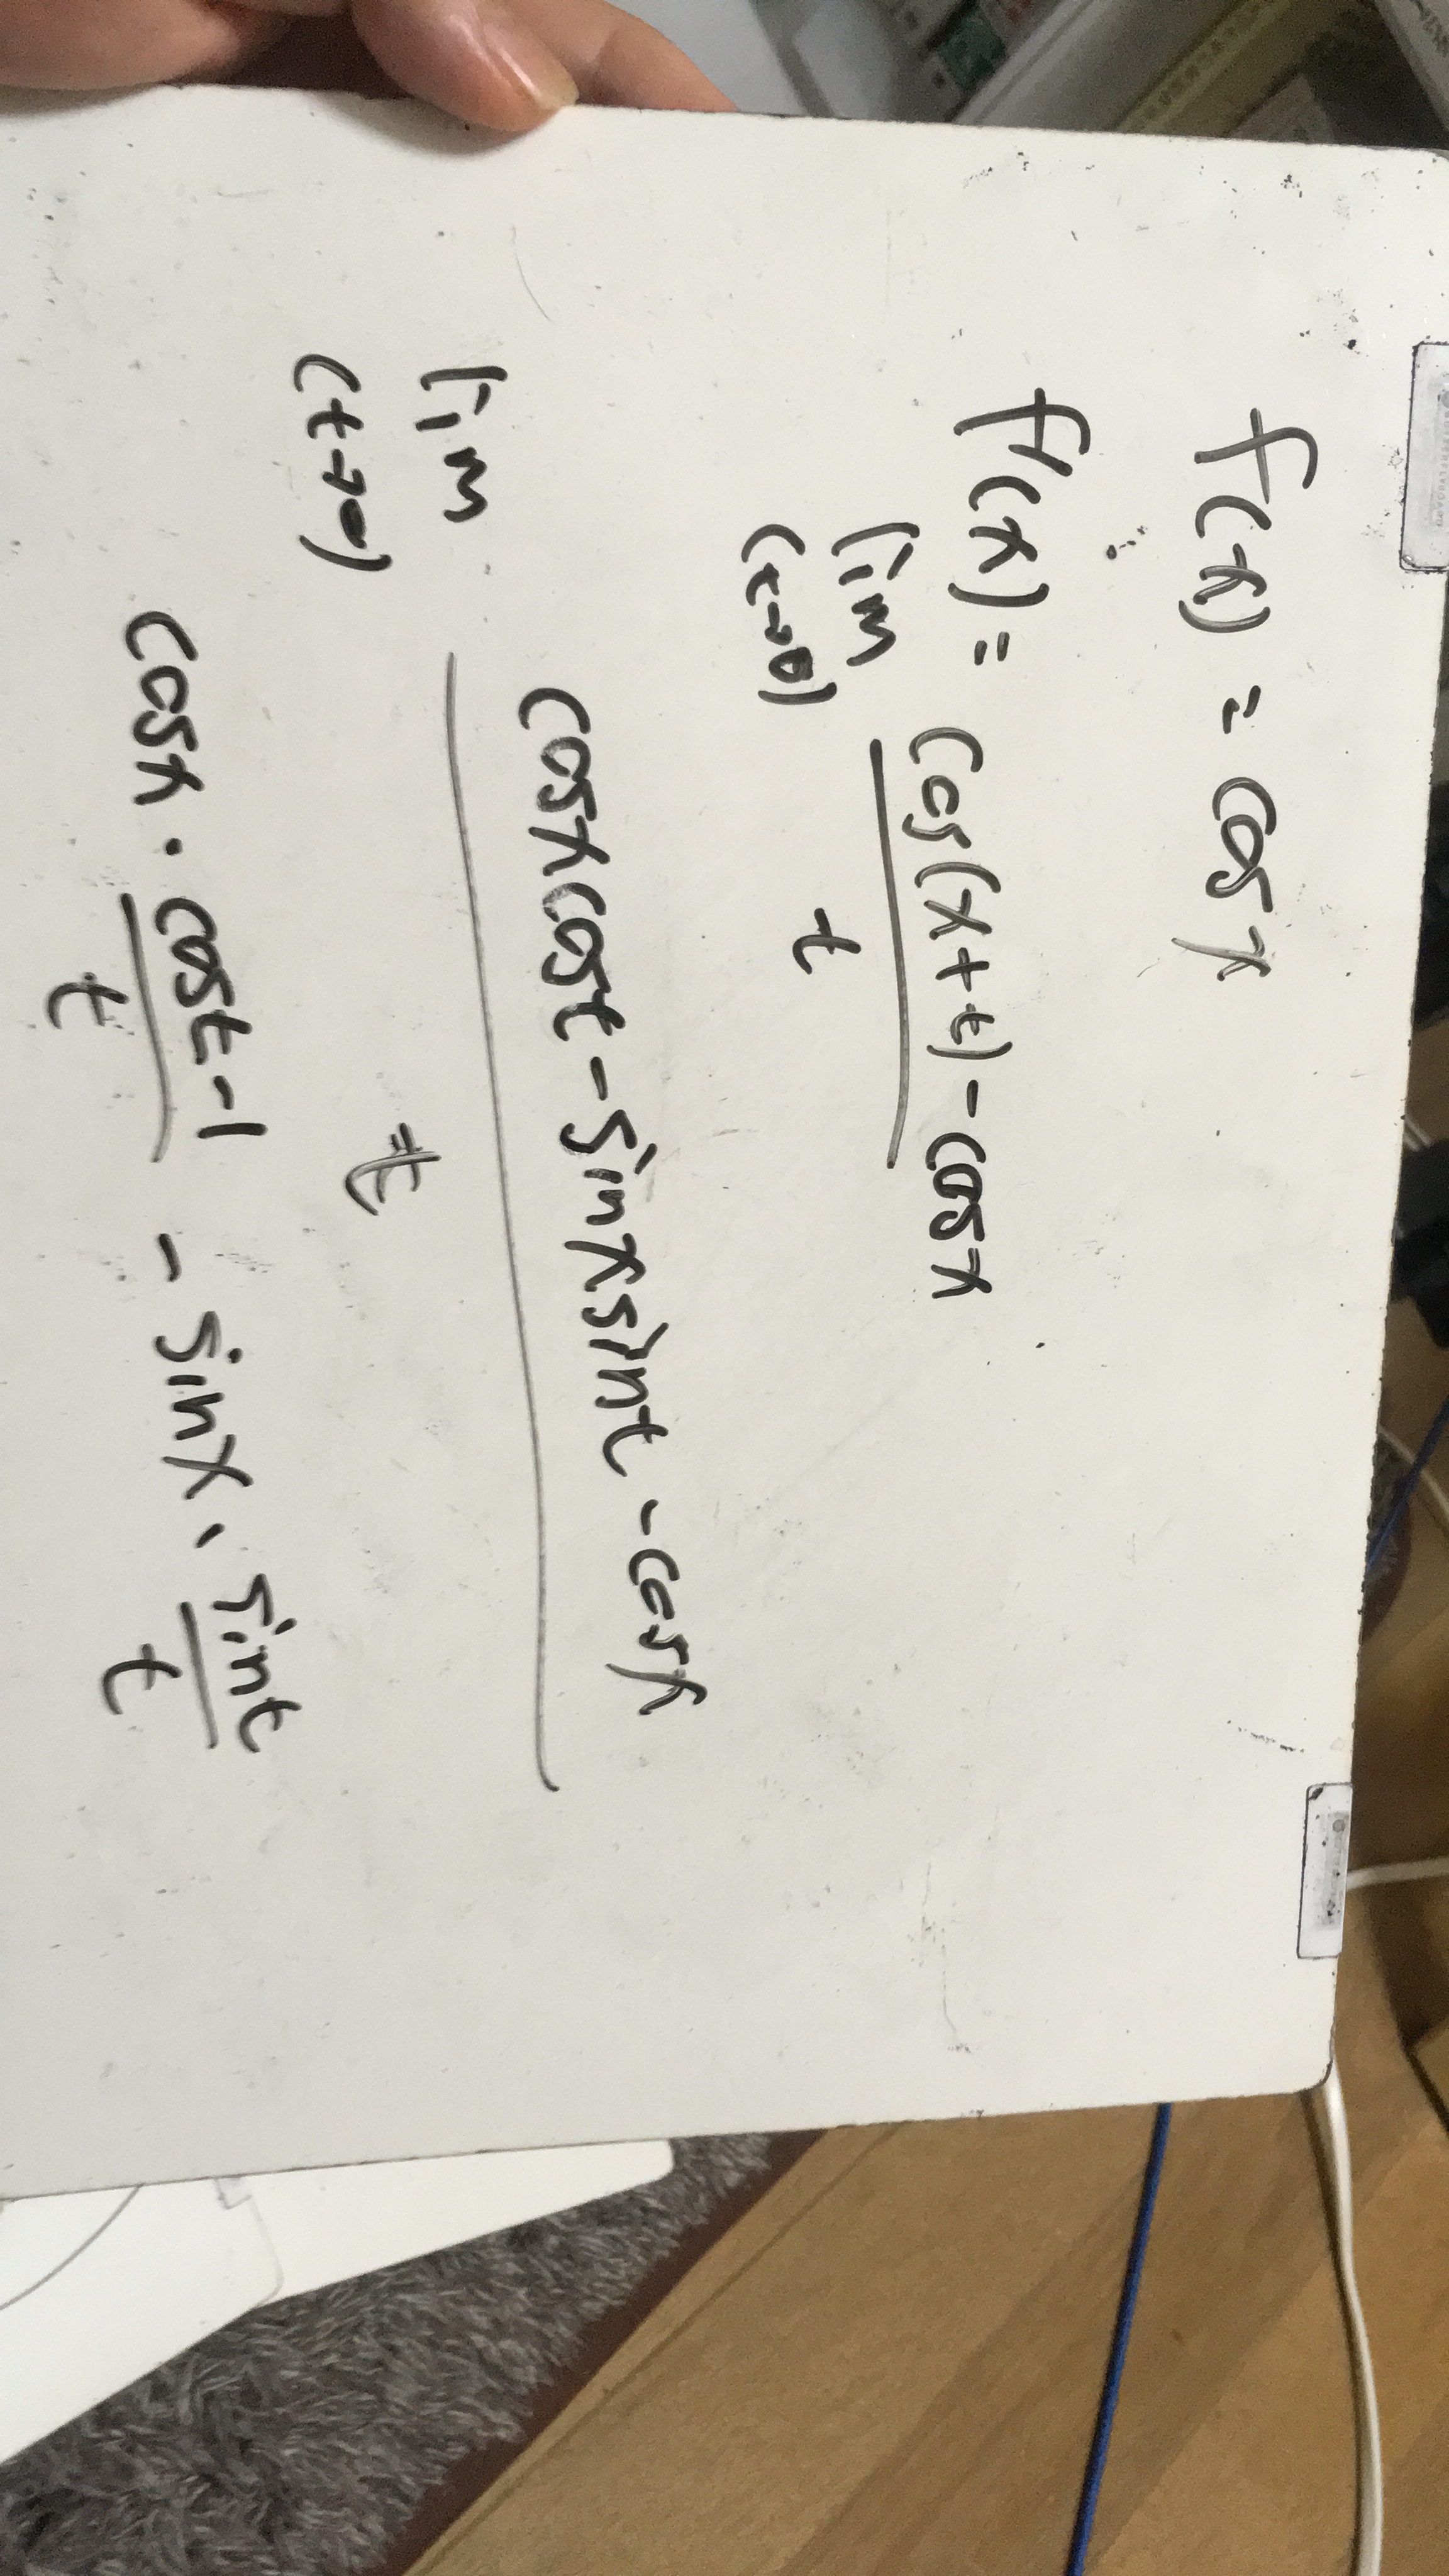 f(x) = cos x
f'(x) = lim (t→0) cos(x+t) - cosx / t
lim (t→0) cosxcost - sinxsint - cosx / t
cosx · cost-1 / t - sinx · sint / t